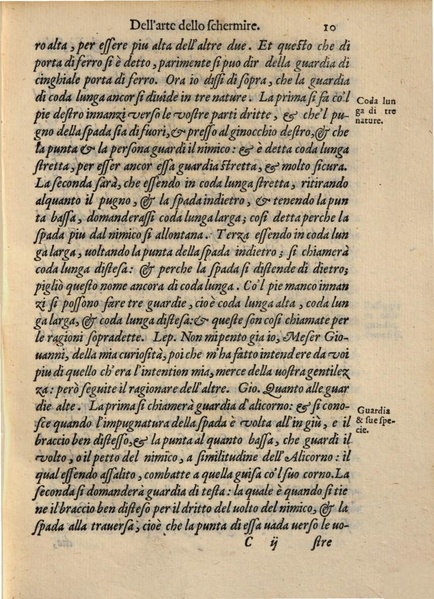 Dell'arte dello schermire. 10
ro alta, per essere piu alta dell'altre due. Et questo che di
porta di ferro si è detto, parimente si puo dir della guardia di
cinghiale porta di ferro. Ora io dissi di sopra, che la guardia
di coda lunga ancor si diuide in tre nature. La prima si fa co'l
Coda lun
ga di tre
nature.
pie destro innanzi verso le vostre parti dritte, & che'l pu-
gno della spada sia di fuori, & presso al ginocchio destro, & che
la punta & la persona guardi il nimico: & è detta coda lunga
stretta, per esser ancor essa guardia stretta, & molto sicura.
La seconda sarà, che essendo in coda lunga stretta, ritirando
alquanto il pugno, & la spada indietro, & tenendo la pun
ta bassa, domanderassi coda lunga larga; così detta perche la
spada piu dal nimico si allontana. Terza essendo in coda lun
ga larga, uoltando la punta della spada indietro; si chiamerà
coda lunga distesa: & perche la spada si distende di dietro;
pigliò questo nome ancora di coda lunga. Co'l pie manco innan
zi si possono fare tre guardie, cioè coda lunga alta, coda lun
ga larga, & coda lunga distesa: & queste son così chiamate per
le ragioni sopradette. Lep. Non mi pento gia io, Meser Gio-
uanni, della mia curiosità, poi che m'ha fatto intendere da voi
piu di quello ch'era l'intention mia, merce della uostra gentilez
za: però seguite il ragionare dell'altre. Gio. Quanto alle guar
die alte. La prima si chiamerà guardia d'alicorno: & si cono-
Guardia
& sue spe-
cie.
sce quando l'impugnatura della spada è volta all'in giù, e il
braccio ben distesso, & la punta al quanto bassa, che guardi il
volto, o il petto del nimico, a similitudine dell'Alicorno: il
qual essendo assalito, combatte a quella guisa co'l suo corno. La
seconda si domanderà guardia di testa: la quale è quando si tie
ne il braccio ben disteso per il dritto del uolto del nimico, & la
spada alla trauersa, cioè che la punta di essa uada verso le uo-
C ij stre